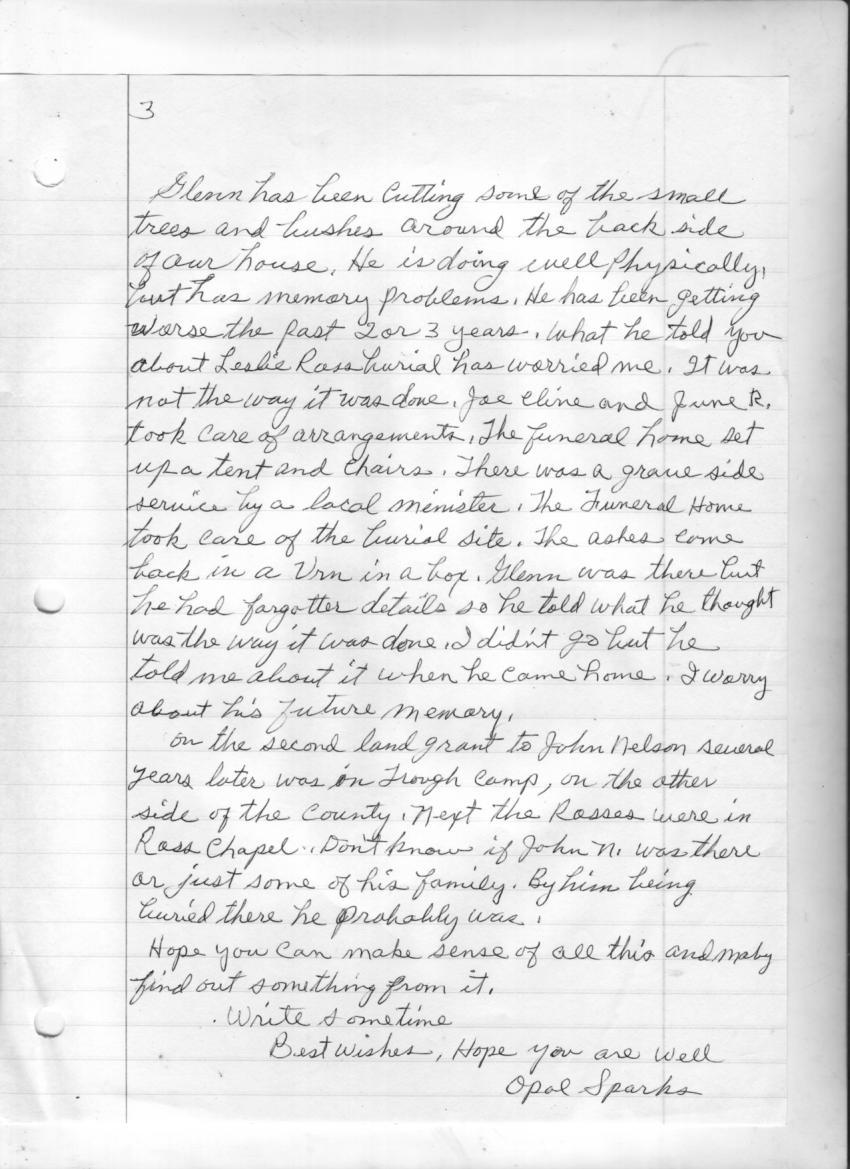 3
Glenn has been cutting some of the small
trees and bushes around the back side
of our house. He is doing well physically,
but has memory problems. He has been getting
worse the past 2 or 3 years. What he told you
about Leslie Ross burial has worried me. It was
not the way it was done. Joe Cline and June R.
took care of arrangements. The funeral home set
up a tent and chairs. There was a grave side
service by a local minister. The Funeral Home
took care of the burial site. The ashes come
back in a Urn in a box. Glenn was there but
he had forgotter details so he told what he thought
was the way it was done. I didn't go but he
told me about it when he come home. I worry
about his future memory.
on the second land grant to John Nelson several
years later was in Trough Camp, on the other
side of the County. Next the Rosses were in
Ross Chapel. Don't know if John N. was there
or just some of his family. By him being
buried there he probably was.
Hope you can make sense of all this and maby
find out something from it.
Write sometime
Best Wishes, Hope you are well
Opal Sparks